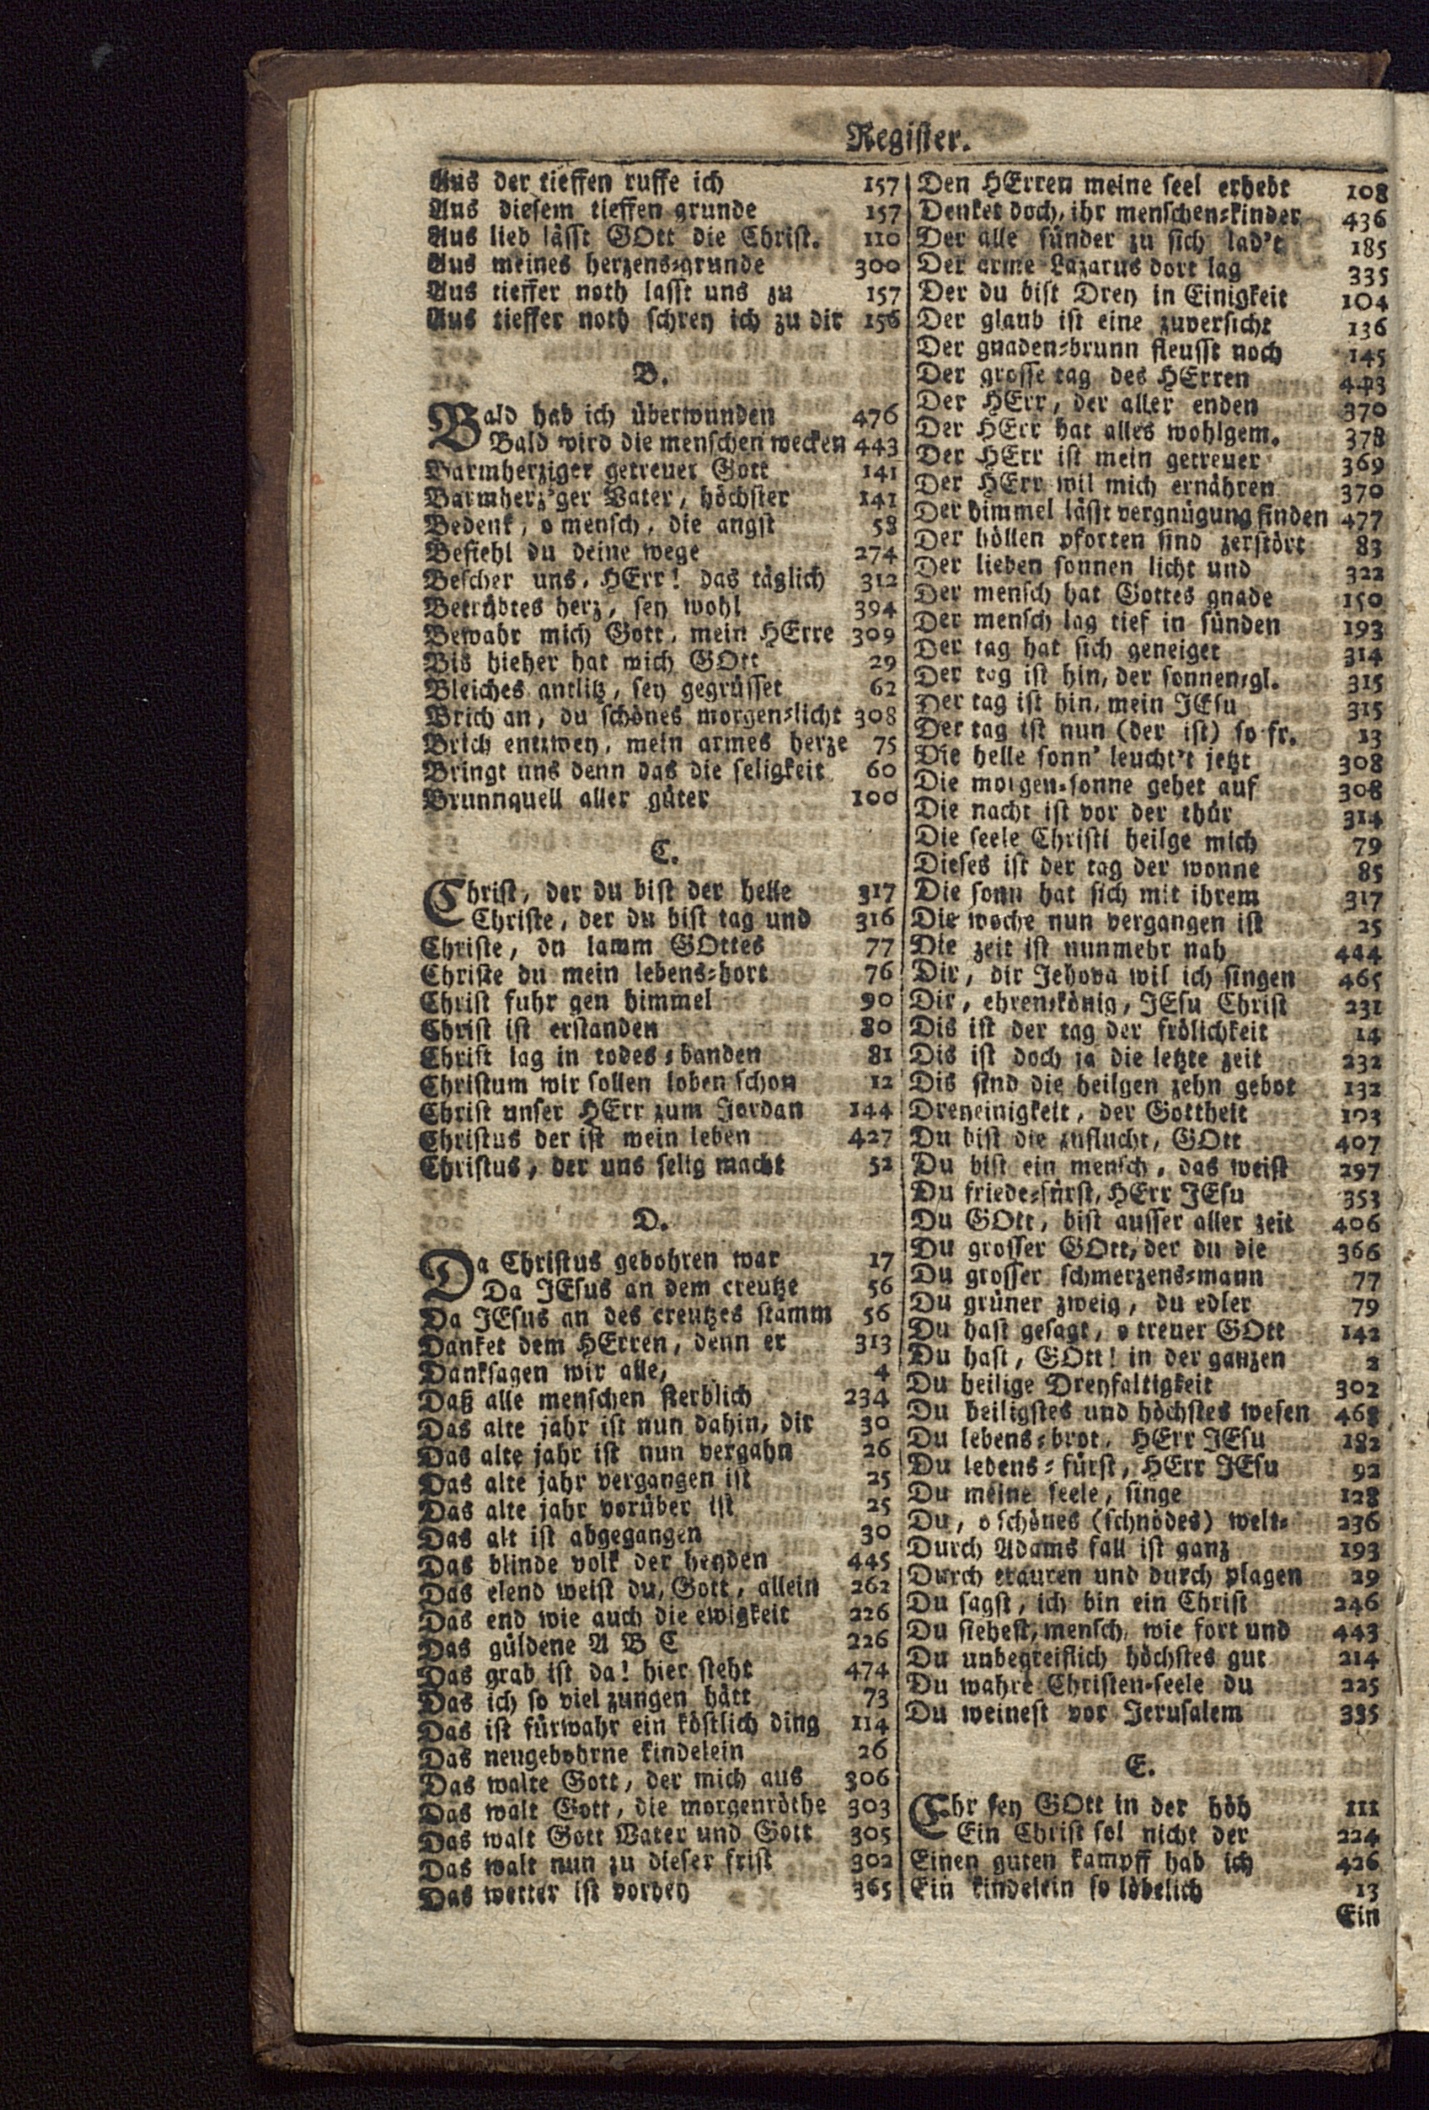 Register.
Aus der tieffen ruffe ich 157
Aus diesem tieffen grunde 157
Aus lieb lässt GOtt die Christ. 110
Aus meines herzens-grunde 300
Aus tieffer noth lasst uns zu 157
Aus tieffer noth schrey ich zu dir 156
B.
Bald hab ich überwunden 476
Bald wird die menschen wecken 443
Barmherziger getreuer Gott 141
Barmherz'ger Vater, höchster 141
Bedenk, o mensch, die angst 58
Befiehl du deine wege 274
Bescher uns, HErr! das täglich 312
Betrübtes herz, sey wohl 394
Bewahr mich Gott, mein HErre 309
Bis hieher hat mich GOtt 29
Bleiches antlitz, sey gegrüsset 62
Brich an, du schönes morgen-licht 308
Brich entzwey, mein armes herze 75
Bringt uns denn das die seligkeit 60
Brunnquell aller güter 100
C.
Christ, der du bist der helle 317
Christe, der du bist tag und 316
Christe, du lamm GOttes 77
Christe du mein lebens-hort 76
Christ fuhr gen himmel 90
Christ ist erstanden 80
Christ lag in todes-banden 81
Christum wir sollen loben schon 12
Christ unser HErr zum Jordan 144
Christus der ist mein leben 427
Christus, der uns selig macht 52
D.
Da Christus gebohren war 17
Da JEsus an dem creutze 56
Da JEsus an des creutzes stamm 56
Danket dem HErren, denn er 313
Danksagen wir alle, 4
Daß alle menschen sterblich 234
Das alte jahr ist nun dahin, dir 30
Das alte jahr ist nun vergahn 26
Das alte jahr vergangen ist 25
Das alte jahr vorüber ist 25
Das alt ist abgegangen 30
Das blinde volk der heyden 445
Das elend weist du, Gott, allein 262
Das end wie auch die ewigkeit 226
Das güldene A B C 226
Das grab ist da! hier steht 474
Das ich so viel zungen hätt 73
Das ist fürwahr ein köstlich ding 114
Das neugebohrne kindelein 26
Das walte Gott, der mich aus 306
Das walt Gott, die morgenröthe 303
Das walt Gott Vater und Gott 305
Das walt nun zu dieser frist 302
Das wetter ist vorbey 365
Den HErren meine seel erhebt 108
Denket doch, ihr menschen-kinder 436
Der alle sünder zu sich lad't 185
Der arme Lazarus dort lag 335
Der du bist Drey in Einigkeit 104
Der glaub ist eine zuversicht 136
Der gnaden-brunn fleusst noch 145
Der grosse tag des HErren 443
Der HErr, der aller enden 370
Der HErr hat alles wohlgem. 378
Der HErr ist mein getreuer 369
Der HErr wil mich ernähren 370
Der himmel lässt vergnügung finden 477
Der höllen pforten sind zerstört 83
Der lieben sonnen licht und 322
Der mensch hat Gottes gnade 150
Der mensch lag tief in sünden 193
Der tag hat sich geneiget 314
Der tag ist hin, der sonnen-gl. 315
Der tag ist hin, mein JEsu 315
Der tag ist nun (der ist) so fr. 13
Die helle sonn' leucht't jetzt 308
Die morgen-sonne gehet auf 308
Die nacht ist vor der thür 314
Die seele Christi heilge mich 79
Dieses ist der tag der wonne 85
Die sonn hat sich mit ihrem 317
Die woche nun vergangen ist 25
Die zeit ist nunmehr nah 444
Dir, dir Jehova wil ich singen 465
Dir, ehren-könig, JEsu Christ 231
Dis ist der tag der frölichkeit 14
Dis ist doch ja die letzte zeit 232
Dis sind die heilgen zehn gebot 132
Dreyeinigkeit, der Gottheit 103
Du bist die zuflucht, GOtt 407
Du bist ein mensch, das weist 297
Du friede-fürst, HErr JEsu 353
Du GOtt, bist ausser aller zeit 406
Du grosser GOtt, der du die 366
Du grosser schmerzens-mann 77
Du grüner zweig, du edler 79
Du hast gesagt, o treuer GOtt 142
Du hast, GOtt! in der ganzen 2
Du heilige Dreyfaltigkeit 302
Du heiligstes und höchstes wesen 468
Du lebens-brot, HErr JEsu 182
Du lebens-fürst, HErr JEsu 92
Du meine seele, singe 128
Du, o schönes (schnödes) welt- 236
Durch Adams fall ist ganz 193
Durch trauren und durch plagen 29
Du sagst, ich bin ein Christ 246
Du siehest, mensch, wie fort und 443
Du unbegreiflich höchstes gut 214
Du wahre Christen-seele du 225
Du weinest vor Jerusalem 335
E.
Ehr sey GOtt in der höh 111
Ein Christ sol nicht der 224
Einen guten kampff hab ich 426
Ein kindelein so löbelich 13
Ein